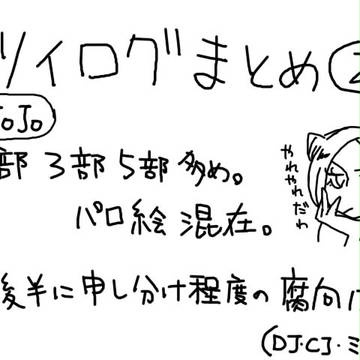 ツイログまとめ②
JoJo
部 3部 5部 多め。
やれやれだわ
パロ絵 混在。
後半に申し分け程度の腐向け
(DJ・CJ・ミ